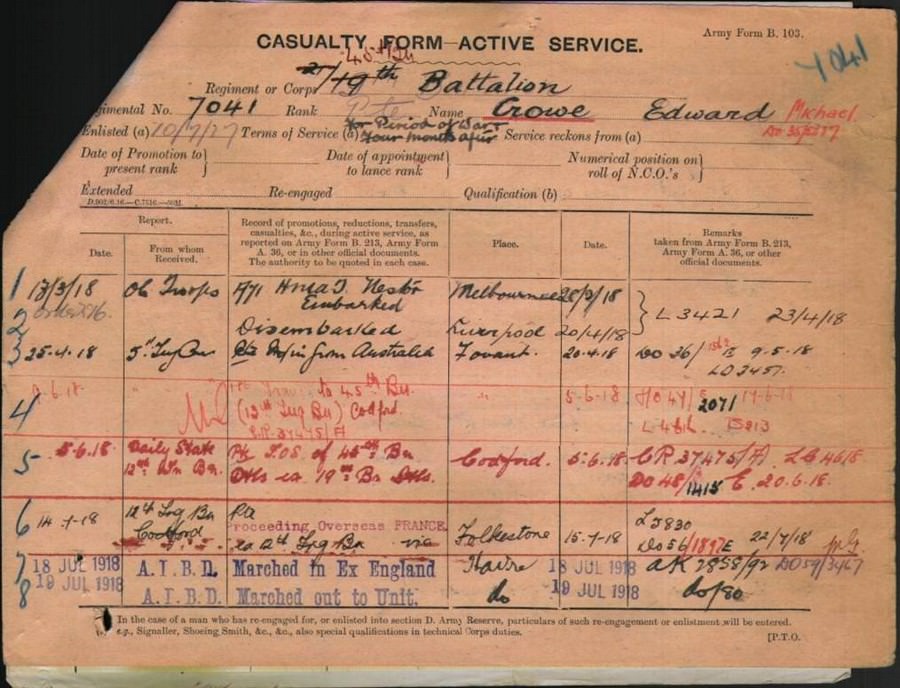 Army Form B. 103.
CASUALTY FORM—ACTIVE SERVICE.
7041
45th Bn
Regiment or Corps 19th Battalion
Regimental No. 7041 Rank Pte Name Crowe Edward Michael
Enlisted (a) 10/7/17 Terms of Service (b) For Period of War & Four months after Service reckons from (a)
Date of Promotion to present rank } Date of appointment to lance rank } Numerical position on roll of N.C.O.'s }
Extended Re-engaged Qualification (b)
D.902/6.16.—C.7516.—
Report.
Date.
From whom Received.
Record of promotions, reductions, transfers, casualties, &c., during active service, as reported on Army Form B. 213, Army Form A. 36, or in other official documents. The authority to be quoted in each case.
Place.
Date.
Remarks taken from Army Form B. 213, Army Form A. 36, or other official documents.
1 13/3/18 OC Troops A71 HMAT. Nestor Embarked Melbourne 28/2/18
2 Disembarked Liverpool 20/4/18 } L 3421 23/4/18
3 25.4.18 5th Trg Bn M/in from Australia Fovant. 20.4.18 DO 36/ 9-5-18
LD 3457.
4 to 45th Bn " 5-6-18
(12th Trg Bn) Codford. 2071
C.R. 37475/A B213
5 5.6.18 Daily State Pte T.O.S. of 45th Bn Codford. 5.6.18 CR 37475/A)
12th Trn Bn. Dtls ex. 19th Bn Dtls. DO 48/1415 E. 20.6.18.
6 14-7-18 12th Trg Bn Pte
Codford Proceeding Overseas FRANCE Folkestone 15-7-18 L5830
ex 12th Trg Bn via Do 56/1897E 22/7/18
7 18 JUL 1918 A.I.B.D. Marched in Ex England Havre 18 JUL 1918 AK 2858/92 DO59/3467
8 19 JUL 1918 A.I.B.D. Marched out to Unit. do 19 JUL 1918 do/80
In the case of a man who has re-engaged for, or enlisted into section D. Army Reserve, particulars of such re-engagement or enlistment will be entered.
e.g., Signaller, Shoeing Smith, &c., &c., also special qualifications in technical Corps duties.
[P.T.O.